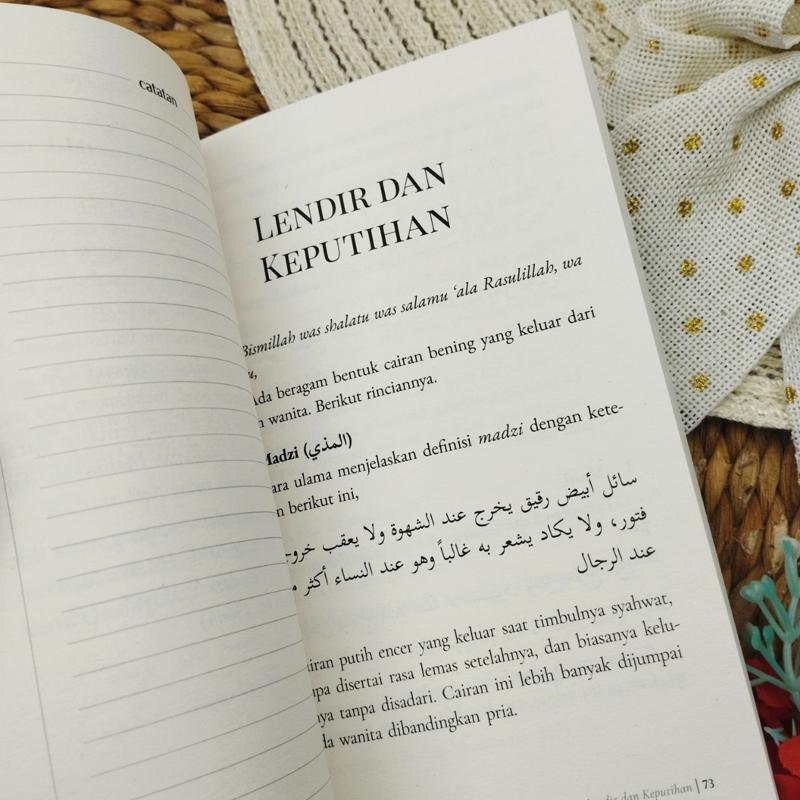 catatan
LENDIR DAN
KEPUTIHAN
Bismillah was shalatu was salamu ‘ala Rasulillah, wa
Ada beragam bentuk cairan bening yang keluar dari
wanita. Berikut rinciannya.
Madzi (المذي)
ulama menjelaskan definisi madzi dengan kete-
berikut ini,
سائل أبيض رقيق يخرج عند الشهوة ولا يعقب
فتور، ولا يكاد يشعر به غالباً وهو عند النساء أكثر
عند الرجال
putih encer yang keluar saat timbulnya syahwat,
disertai rasa lemas setelahnya, dan biasanya kelu-
tanpa disadari. Cairan ini lebih banyak dijumpai
wanita dibandingkan pria.
dan Keputihan | 73